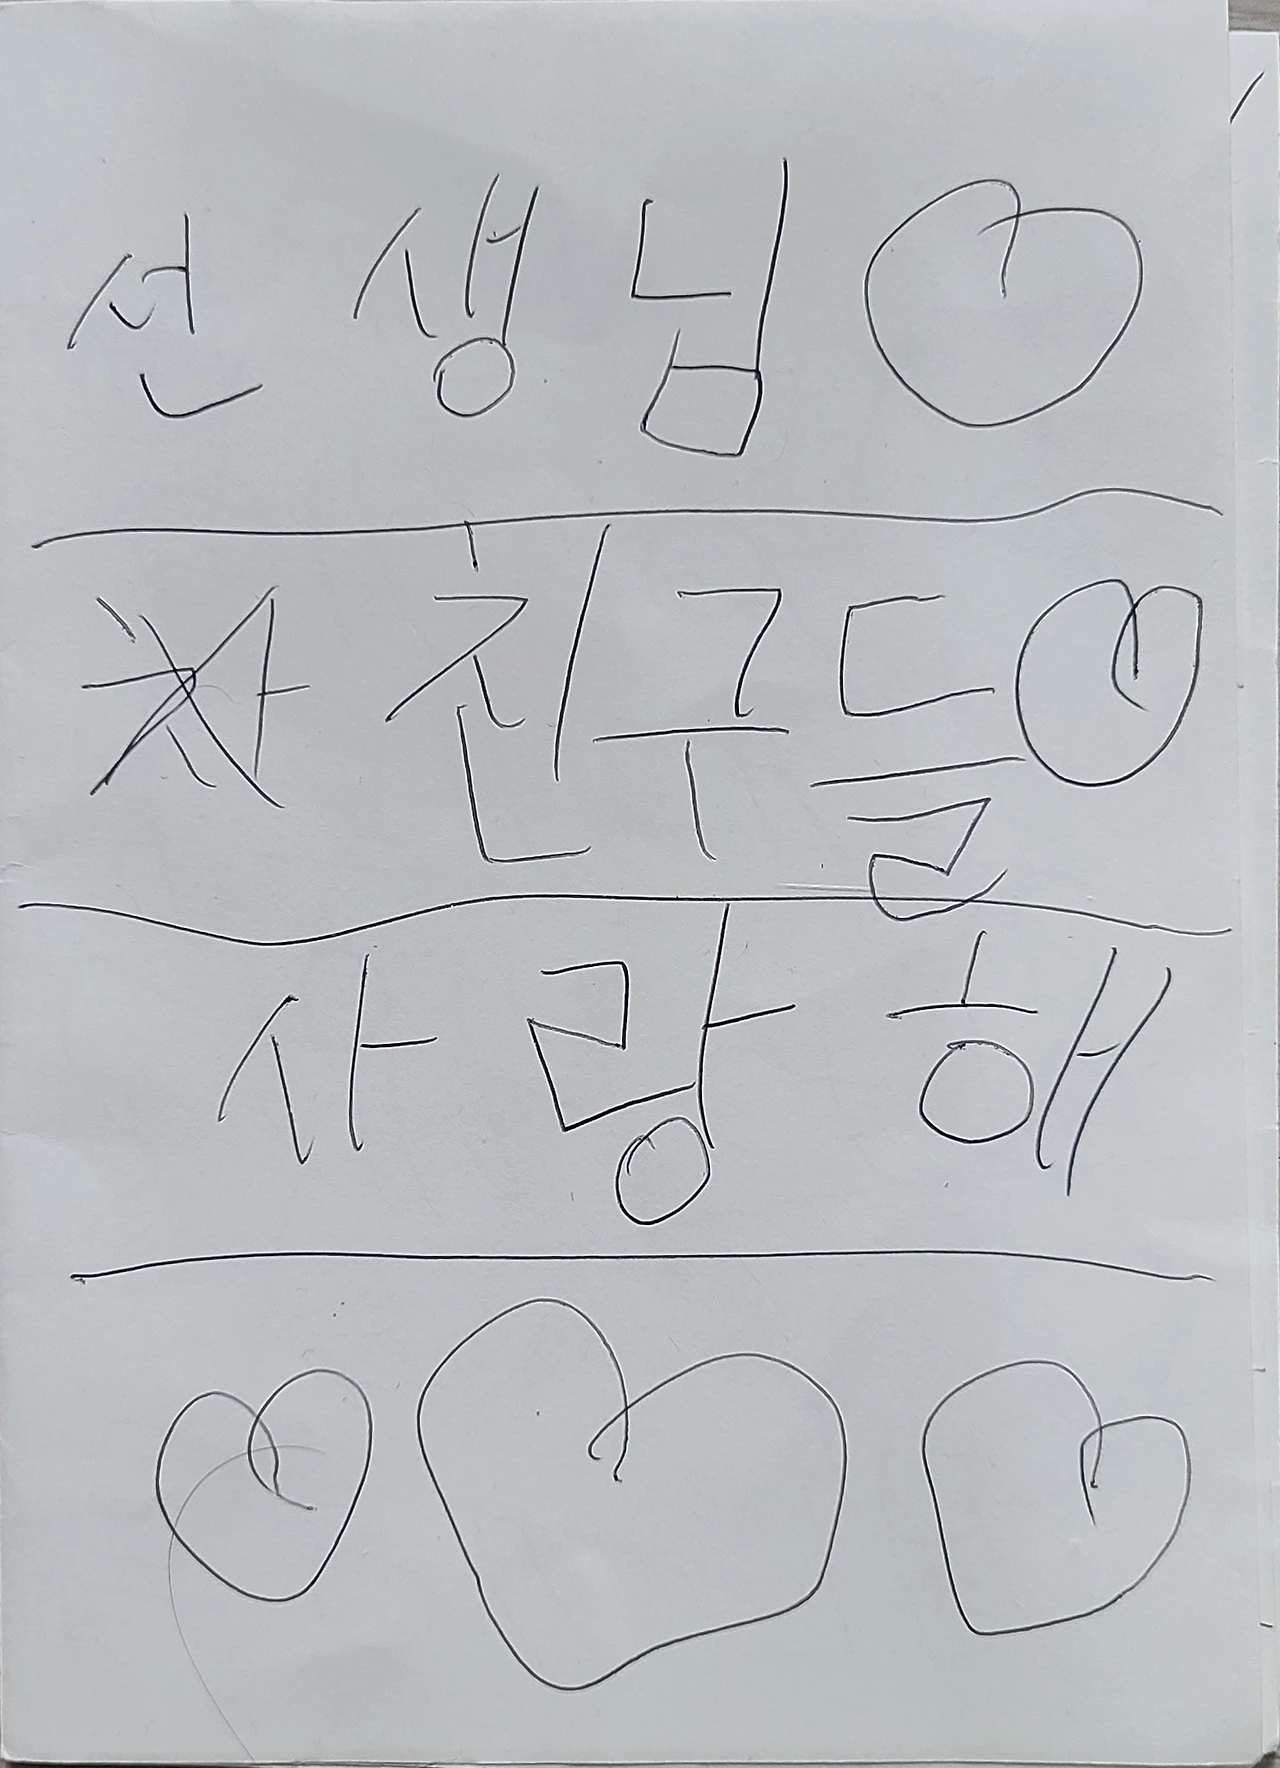 선생님♡
친구들♡
사랑해